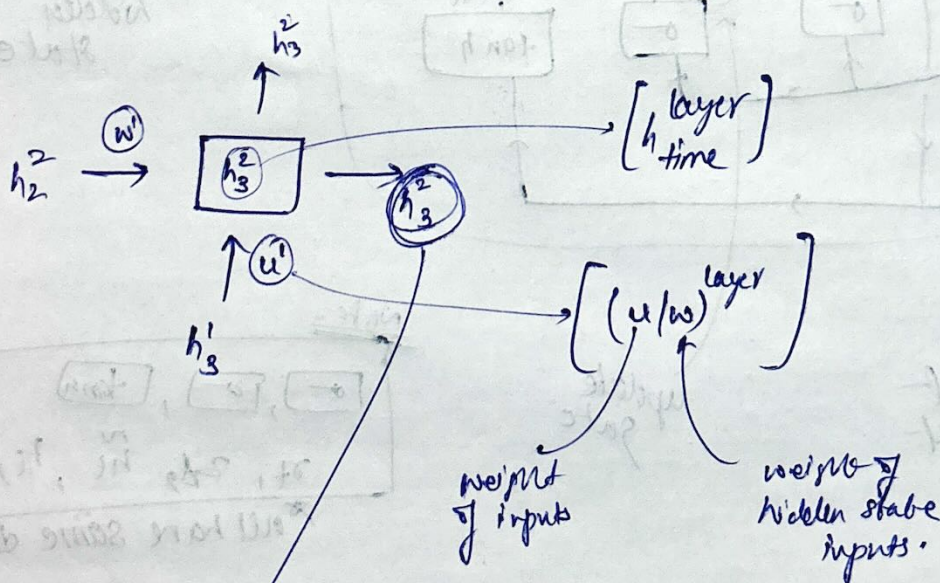 h₃²
h₂² w' h₃² h₃² [h layer time]
u' [(u/w) layer]
h₃¹
weight of inputs
weight of hidden state inputs.